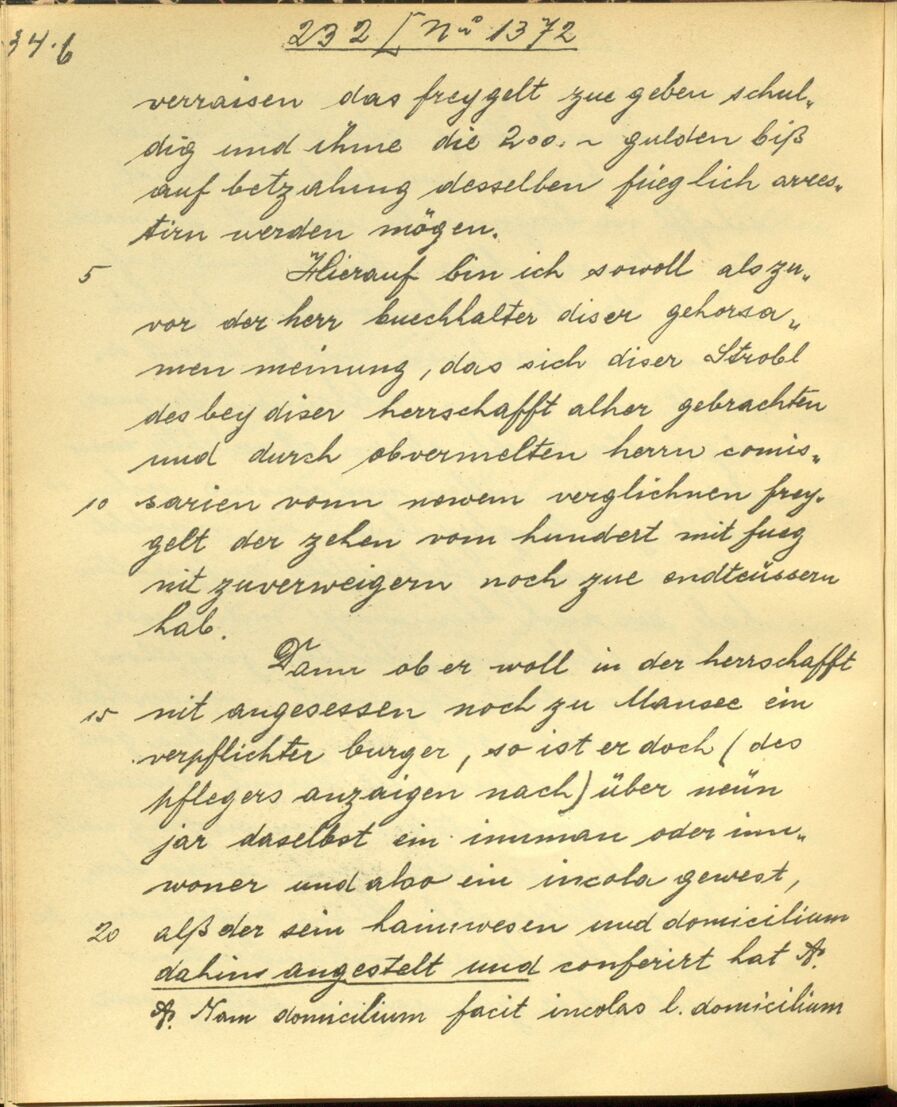 34.6
232 [ No 1372
verraisen das freygelt zue geben schul„
dig und ihme die 200. ~ gulden biß
auf betzalung desselben füeglich arres„
tirn werden mögen.
5 Hierauf bin ich sowoll als zu„
vor der herr buechhalter diser gehorsa„
men meinung, das sich diser Strobl
des bey diser herrschafft alher gebrachten
und durch obvermelten herrn comis„
10 sarien vonn newem verglichnen frey„
gelt der zehen vom hundert mit fueg
nit zuverweigern noch zue endteüssern
hab.
Dann ob er woll in der herrschafft
15 nit angesessen noch zu Mansee ein
verpflichter burger, so ist er doch (des
pflegers anzaigen nach) über neün
jar daselbst ein innman oder inn„
woner und also ein incola gewest,
20 alß der sein hainwesen und domicilium
dahin angestelt und conferirt hat A.
A. Nam domicilium facit incolas l. domicilium